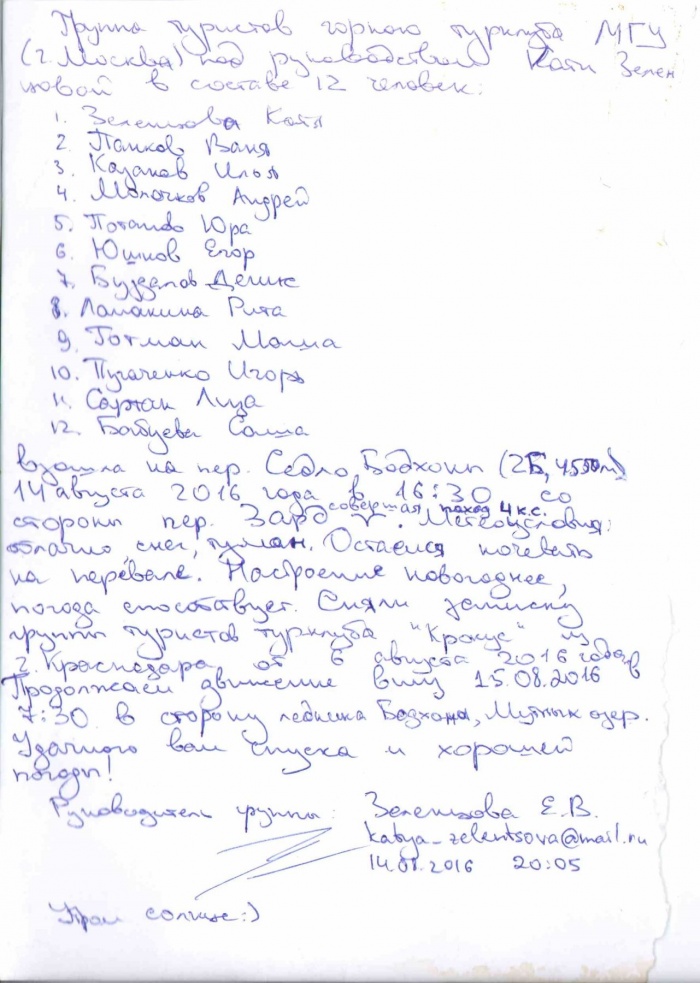 Группа туристов горного турклуба МГУ
(г. Москва) под руководством Кати Зелен
цовой в составе 12 человек:
1. Зеленцова Катя
2. Панков Ваня
3. Казаков Илья
4. Молочков Андрей
5. Потапов Юра
6. Юшков Егор
7. Денис
8. Ломакина Рита
9. Готман Маша
10. Пугаченко Игорь
11. Сартан Лиза
12. Бабуева Саша
взошла на пер. Седло Бодхоны (2Б, 4550м)
14 августа 2016 года в 16:30 со
совершая поход 4 к.с.
стороны пер. Зард. Метеоусловия:
облачно, снег, туман. Остаемся ночевать
на перевале. Настроение новогоднее,
погода способствует. Сняли записку
группы туристов турклуба "Крокус" из
г. Краснодара от 6 августа 2016 года
Продолжаем движение вниз 15.08.2016 в
7:30 в сторону ледника Бодхона, Мутных озер.
Удачного вам спуска и хорошей
погоды!
Руководитель группы: Зеленцова Е.В.
katya_zelentsova@mail.ru
14.08.2016 20:05
Утром солнце:)